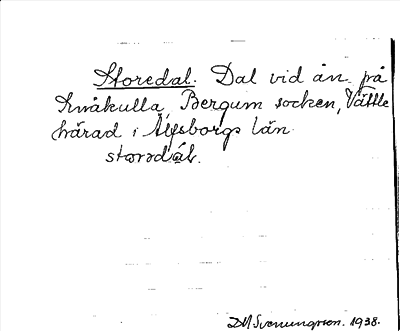 Storedal. Dal vid ån på
Småkulla, Bergum socken, Vättle
härad i Älvsborgs län.
D.H. Svenungsson. 1938.